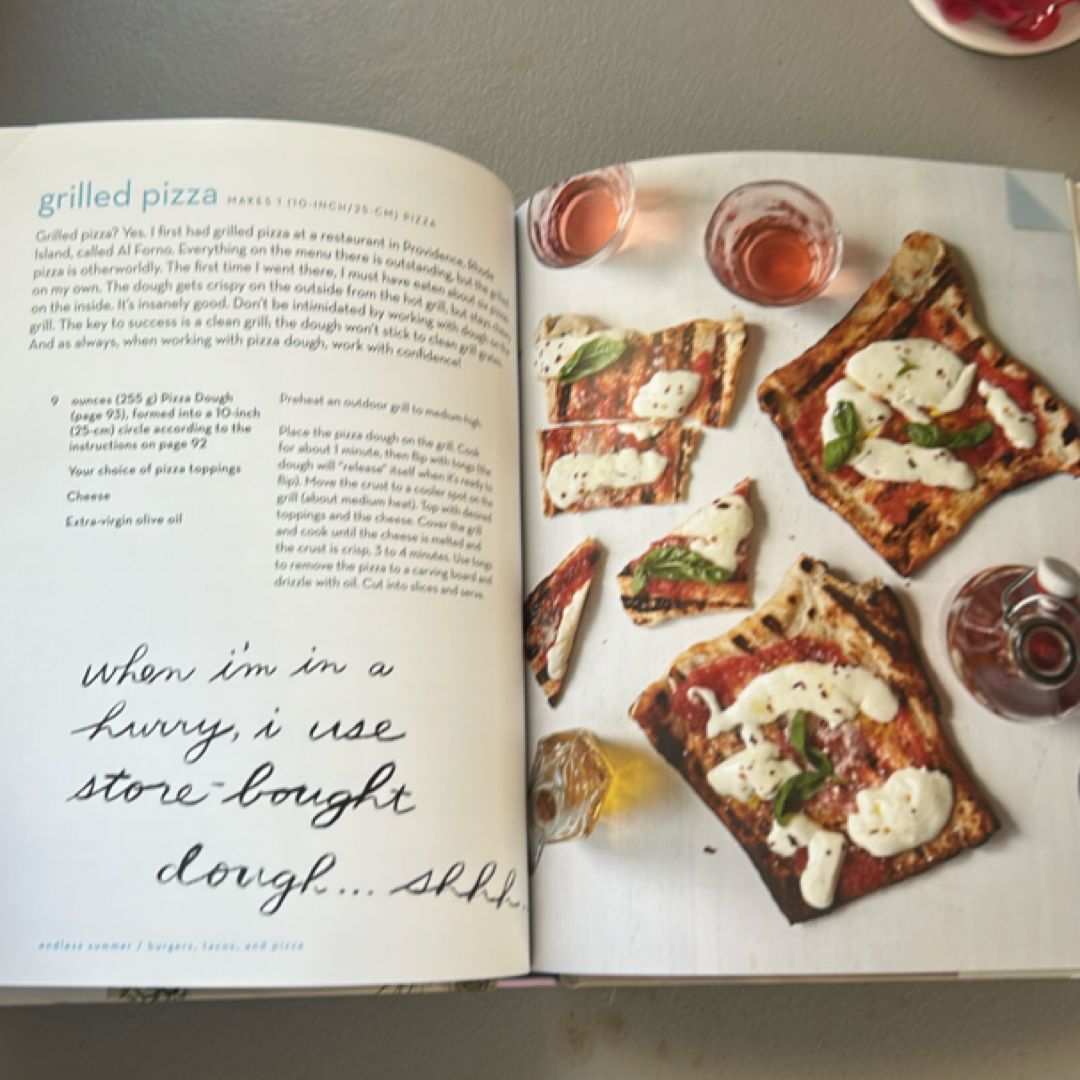 grilled pizza MAKES 1 (10-INCH/25-CM) PIZZA
Grilled pizza? Yes. I first had grilled pizza at a restaurant in Providence, Rhode
Island, called Al Forno. Everything on the menu there is outstanding, but the grilled
pizza is otherworldly. The first time I went there, I must have eaten about six pizzas
on my own. The dough gets crispy on the outside from the hot grill, but stays chewy
on the inside. It's insanely good. Don't be intimidated by working with dough on the
grill. The key to success is a clean grill; the dough won't stick to clean grill grates.
And as always, when working with pizza dough, work with confidence!
9 ounces (255 g) Pizza Dough
(page 93), formed into a 10-inch
(25-cm) circle according to the
instructions on page 92
Your choice of pizza toppings
Cheese
Extra-virgin olive oil
Preheat an outdoor grill to medium-high.
Place the pizza dough on the grill. Cook
for about 1 minute, then flip with tongs (the
dough will "release" itself when it's ready to
flip). Move the crust to a cooler spot on the
grill (about medium heat). Top with desired
toppings and the cheese. Cover the grill
and cook until the cheese is melted and
the crust is crisp, 3 to 4 minutes. Use tongs
to remove the pizza to a carving board and
drizzle with oil. Cut into slices and serve.
when i'm in a
hurry, i use
store-bought
dough... shhh.
endless summer / burgers, tacos, and pizza